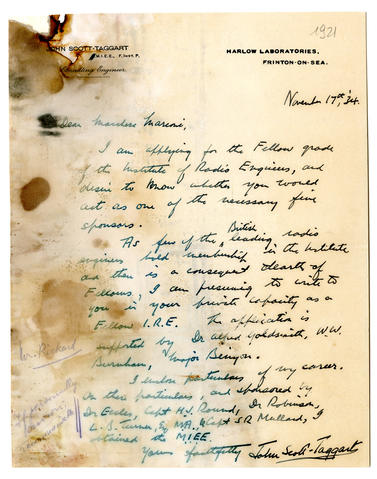 1921
JOHN SCOTT-TAGGART
M.I.E.E., F.Inst.P.
Consulting Engineer.
HARLOW LABORATORIES,
FRINTON-ON-SEA.
November 17th, '34.
Dear Marchese Marconi,
I am applying for the Fellow grade
of the Institute of Radio Engineers, and
desire to know whether you would
act as one of the necessary five
sponsors.
As few of the British leading radio
engineers hold membership in the Institute
and there is a consequent dearth of
Fellows, I am presuming to write to
you in your private capacity as a
Fellow I.R.E. The application is
supported by Dr Alfred Goldsmith, W.W.
Burnham, Major Binyon.
I enclose particulars of my career.
On these particulars, and sponsored by
Dr Eccles, Capt H.J. Round, Dr Robinson,
L.B. Turner, Esq M.A., & Capt S R Mullard, I
obtained the M.I.E.E.
Yours faithfully John Scott-Taggart
Mr. Rickard